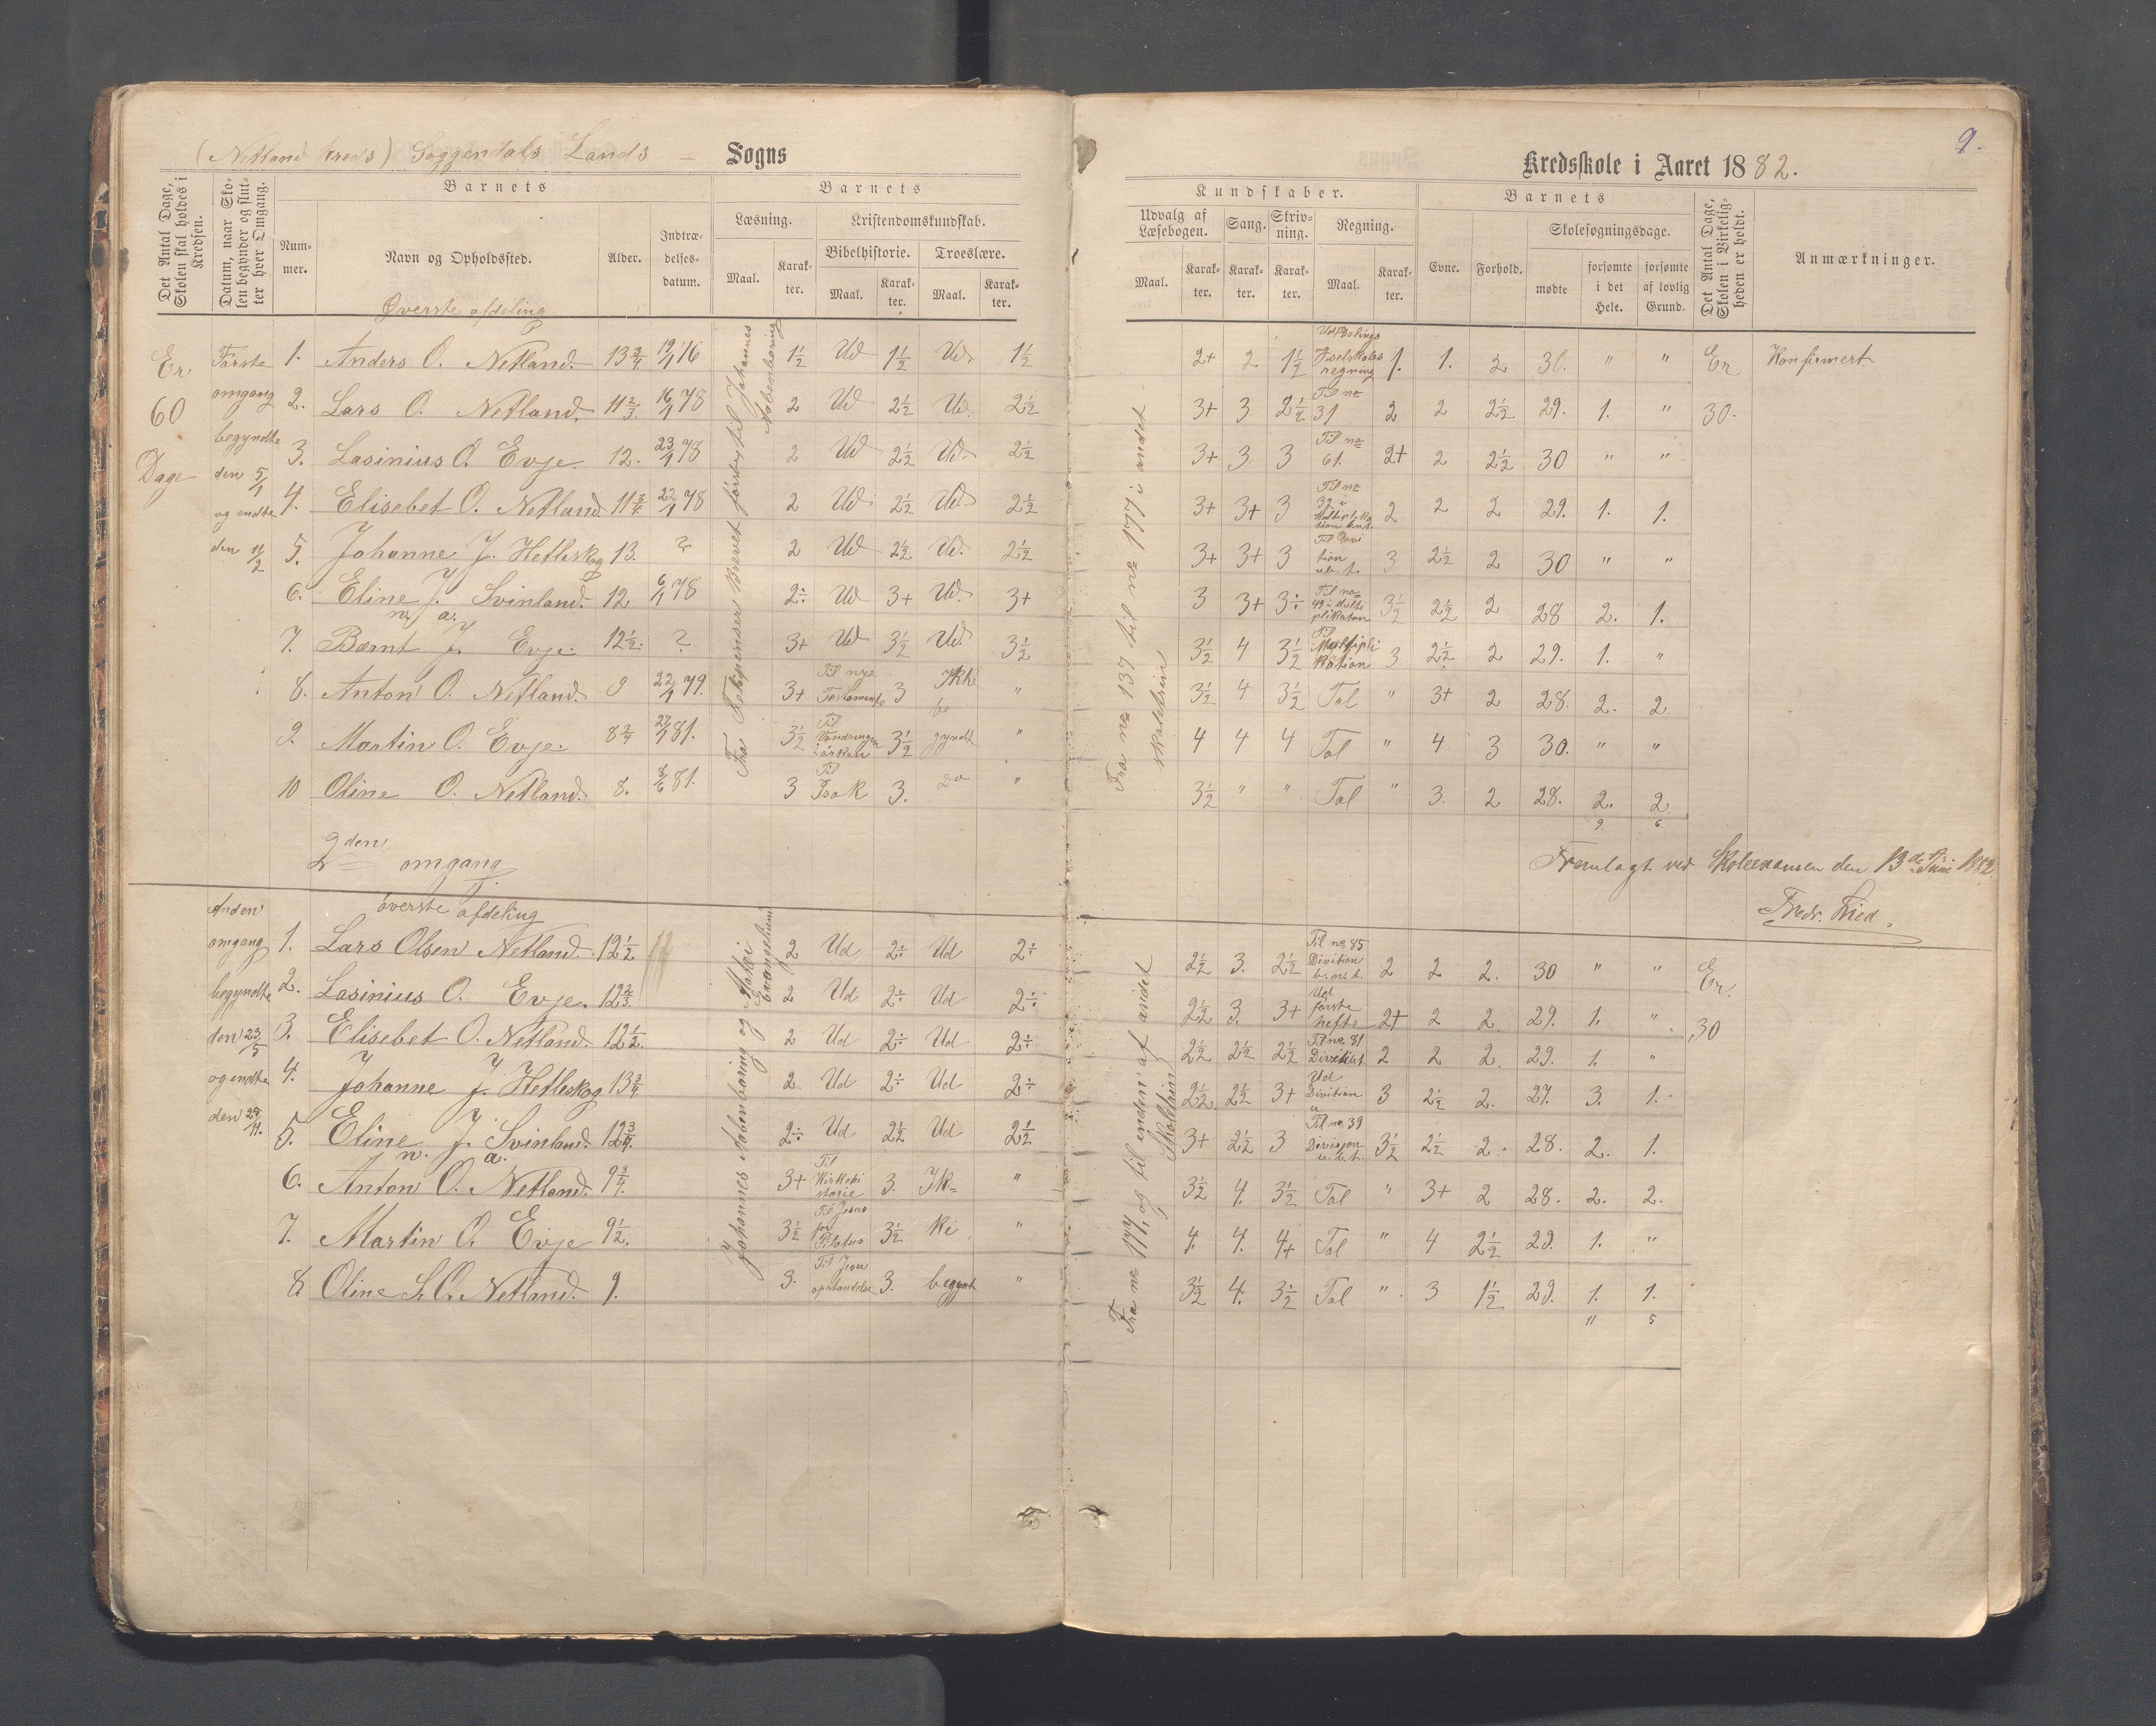 (Netland Kreds) Soggendals Lands – Sogns
Kredsskole i Aaret 1882.
9.
Det Antal Dage, Skolen skal holdes i Kredsen.
Datum, naar Skolen begynder og slutter hver Omgang.
Barnets
Nummer.
Navn og Opholdssted.
Alder.
Indtrædelsesdatum.
Barnets
Læsning.
Kristendomskundskab.
Maal.
Karakter.
Bibelhistorie.
Troeslære.
Maal.
Karakter.
Maal.
Karakter.
Kundskaber.
Udvalg af Læsebogen.
Sang.
Skrivning.
Regning.
Maal.
Karakter.
Karakter.
Karakter.
Maal.
Karakter.
Barnets
Evne.
Forhold.
Skolesøgningsdage.
mødte
forsømte i det Hele.
forsømte af lovlig Grund.
Det Antal Dage, Skolen i Virkeligheden er holdt.
Anmærkninger.
Øverste afdeling
Er 60 Dage
Første omgang begyndte den 5/1 og endte den 11/2
1. Anders O. Netland. 13 3/4 19/1 76 1½ Ud 1½ Ud. 1½ 2+ 2 1½ 1. 1. 2 30. " " Er Konfirmert
2. Lars O. Netland. 11 2/3 16/1 78 2 Ud 2½ Ud. 2½ 3+ 3 2½ Til no 31 2 2 2½ 29. 1. " 30.
3. Lasinius O. Evje. 12. 23/1 78 2 Ud 2½ Ud. 2½ 3+ 3 3 Til no 61. 2+ 2 2½ 30 " "
4. Elisebet O. Netland 11 3/4 22/1 78 2 Ud 2½ Ud. 2½ 3+ 3+ 3 Til no 39 i Multiplikation 2 2 2 29. 1. 1.
5. Johanne J. Hetleskog 13. ? 2 Ud 2½ Ud. 2½ 3+ 3+ 3 Til Divition 3 2½ 2 30 " "
6. Eline J. Svinland. 12 6/1 78 2÷ Ud 3+ Ud. 3+ 3 3+ 3÷ Til no 49 i Multiplikation 3½ 2½ 2 28 2. 1.
n. a.
7. Bærnt J. Evje. 12½. ? 3+ Ud 3½ Ud. 3½ 3½ 4 3½ Til Multiplikation 3. 2½ 2 29. 1. "
8. Anton O. Netland. 9 22/1 79. 3+ Til nye Testamente 3 Ikke " 3½ 4 3½ Tal " 3+ 2 28. 2. 2
9. Martin O. Evje. 8 3/4 27/1 81. 3½ Til Vandringen i ørken 3½ begyndt " 4 4 4 Tal " 4 3 30. " "
10 Oline O. Netland. 8. 8/6 81. 3 Til Isak 3. Do " 3½ " " Tal " 3. 2 28. 2. 2.
9. 6.
Fra Foligenser Brevet førstby til Johannes Aabenbaring
Fra no 137 til no 177 i andet skoletrin
2den omgang
Fremlagt ved Skoleexamen den 13de Juni 1882
Fredr. Lied.
øverste afdeling
Anden omgang begyndte den 23/5 og endte den 25/11.
1. Lars Olsen Netland. 12½ 2 Ud 2÷ Ud 2÷ 2½ 3. 2½ Til no 85 Divition 2 2 2. 30 " " Er.
2. Lasinius O. Evje. 12 2/3. 2 Ud 2÷ Ud 2÷ 2½ 3. 3+ Ud første hefte 2+ 2 2 29. 1. " 30
3. Elisebet O. Netland. 12½. 2 Ud 2÷ Ud 2÷ 2½ 2½ 2½ Til no 81 2 2 2. 29. 1. "
4. Johanne J. Hetleskog 13 3/4 2 Ud 2÷ Ud 2÷ 2½ 2½ 3+ Ud Divition 3 2½ 2. 27. 3. 1.
5. Eline J. Svinland. 12 3/4. 2÷ Ud 2½ Ud 2½ 3+ 2½ 3 Til no 39 Divisjon 3½ 2½ 2. 28. 2. 1.
n. a.
6. Anton O. Netland. 9 3/4. 3+ Til Kirkehistorie 3. Ik= " 3½ 4. 3½ Tal " 3+ 2 28. 2. 2.
7. Martin O. Evje 9½. 3½ Til Jesus for Pilatus 3½ ke " 4. 4. 4+ Tal " 4 2½ 29. 1. "
8. Oline S. O. Netland. 9. 3. Til Jesu opstandelse 3. begynt " 3½ 4. 3½ Tal " 3 1½ 29. 1. 1.
11 5
Johannes Aabenbaring og Matæi Evangelium
Fra no 177, og til enden af andet Skoletrin